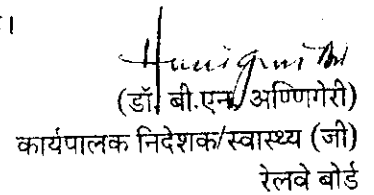 ।
(डॉ. बी.एन. अण्णिगेरी)
कार्यपालक निदेशक/स्वास्थ्य (जी)
रेलवे बोर्ड